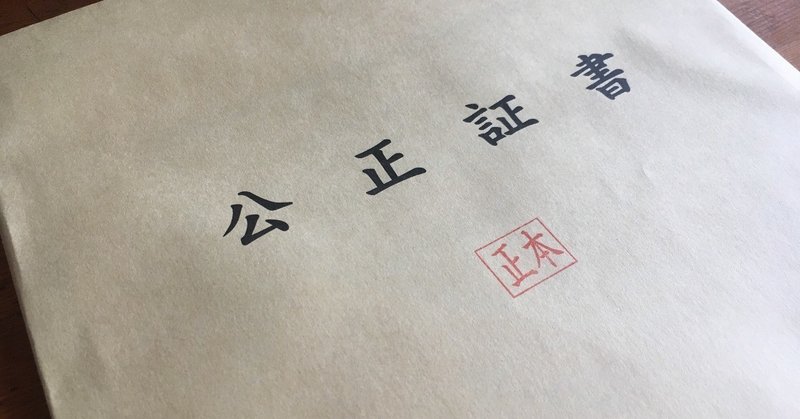 公正証書
正本